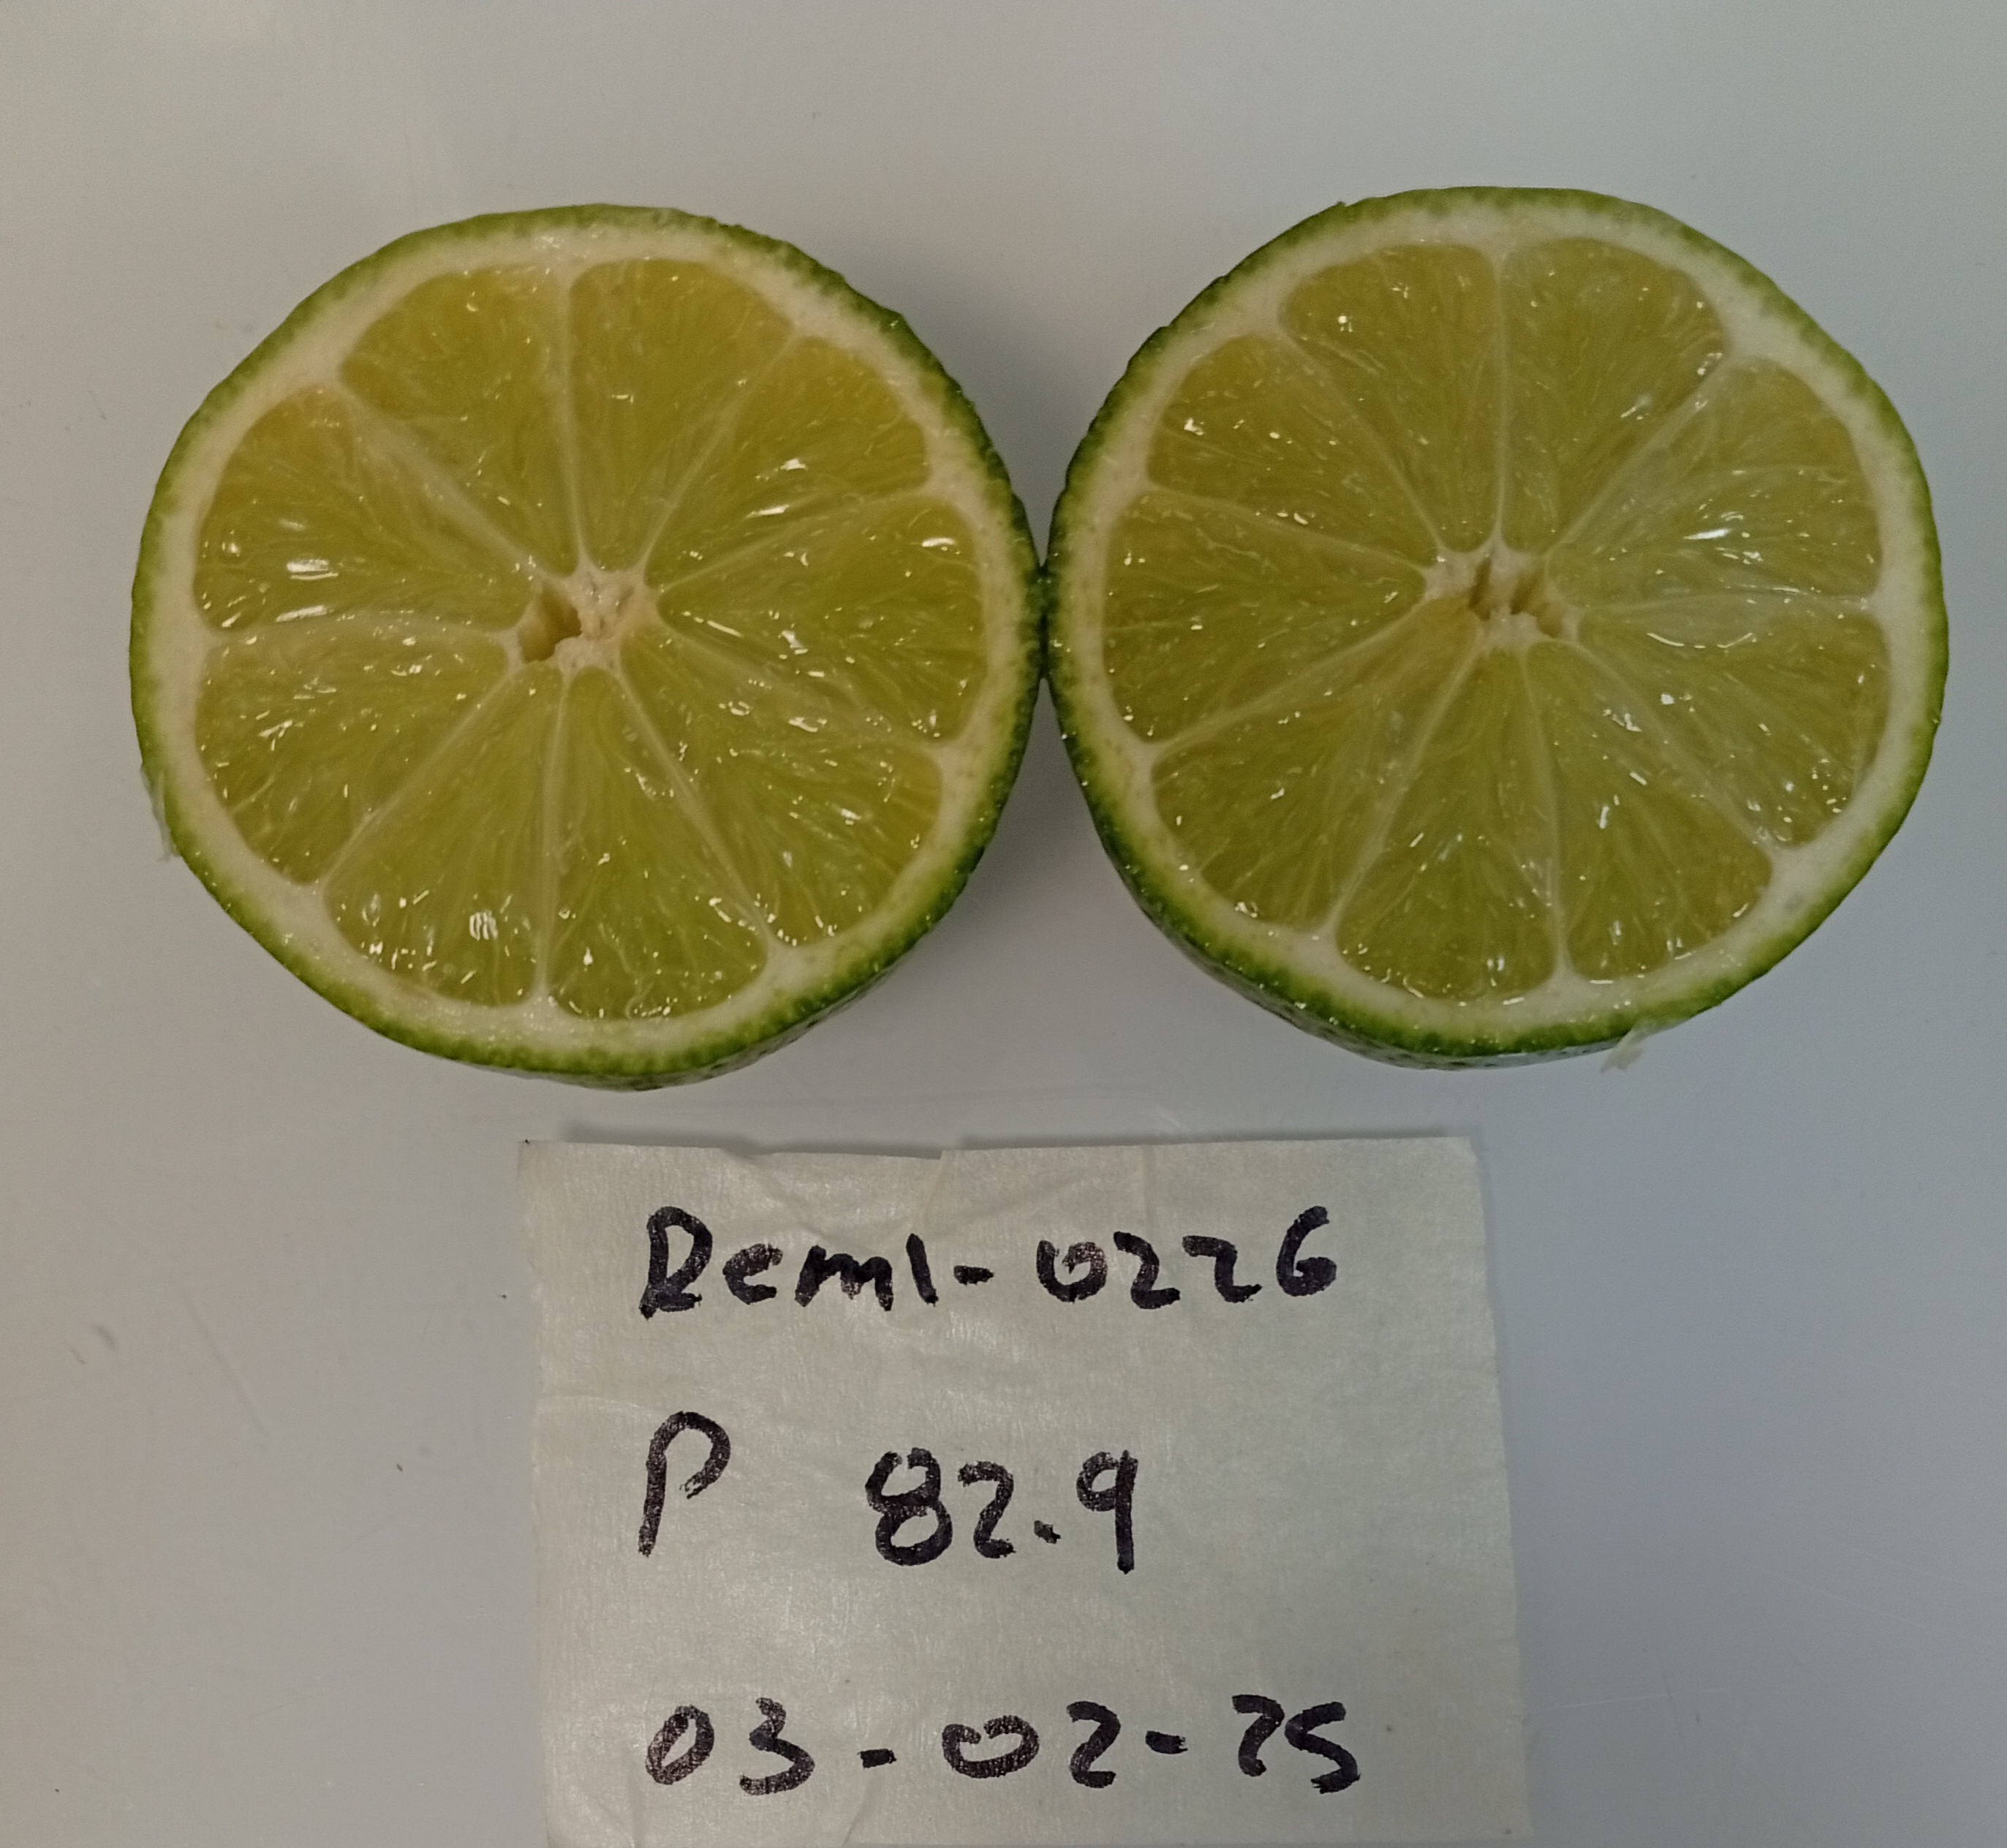 Reml-0226
P 82.9
03-02-25